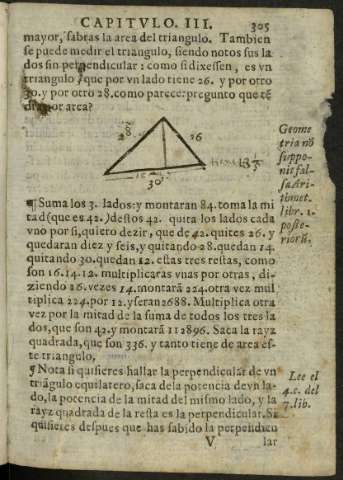 CAPITVLO. III. 305
mayor, sabras la area del triangulo. Tambien
se puede medir el triangulo, siendo notos sus la
dos sin perpendicular: como si dixessen, es vn
triangulo, que por vn lado tiene 26. y por otro
30. y por otro 28. como parece: pregunto que tē
dra por area?
28
26
30
Geome
tria nō
suppo-
nit fal-
sa. Ari-
thmet.
libr. 1.
poste-
riorū.
¶ Suma los 3. lados: y montaran 84. toma la mi
tad (que es 42.) destos 42. quita los lados cada
vno por si, quiero dezir, que de 42. quites 26. y
quedaran diez y seis, y quitando 28. quedan 14.
quitando 30. quedan 12. estas tres restas, como
son 16. 14. 12. multiplicaras vnas por otras, di-
ziendo 16. vezes 14. montarà 224. otra vez mul
tiplica 224. por 12. y seran 2688. Multiplica otra
vez por la mitad de la suma de todos los tres la
dos, que son 42. y montarà 112896. Saca la rayz
quadrada, que son 336. y tanto tiene de area es-
te triangulo,
¶ Nota si quisieres hallar la perpendicular de vn
triāgulo equilatero, saca de la potencia de vn la-
do, la potencia de la mitad del mismo lado, y la
rayz quadrada de la resta es la perpendicular. Si
quisieres despues que has sabido la perpendicu
Lee el
4. c. del
7. lib.
V lar